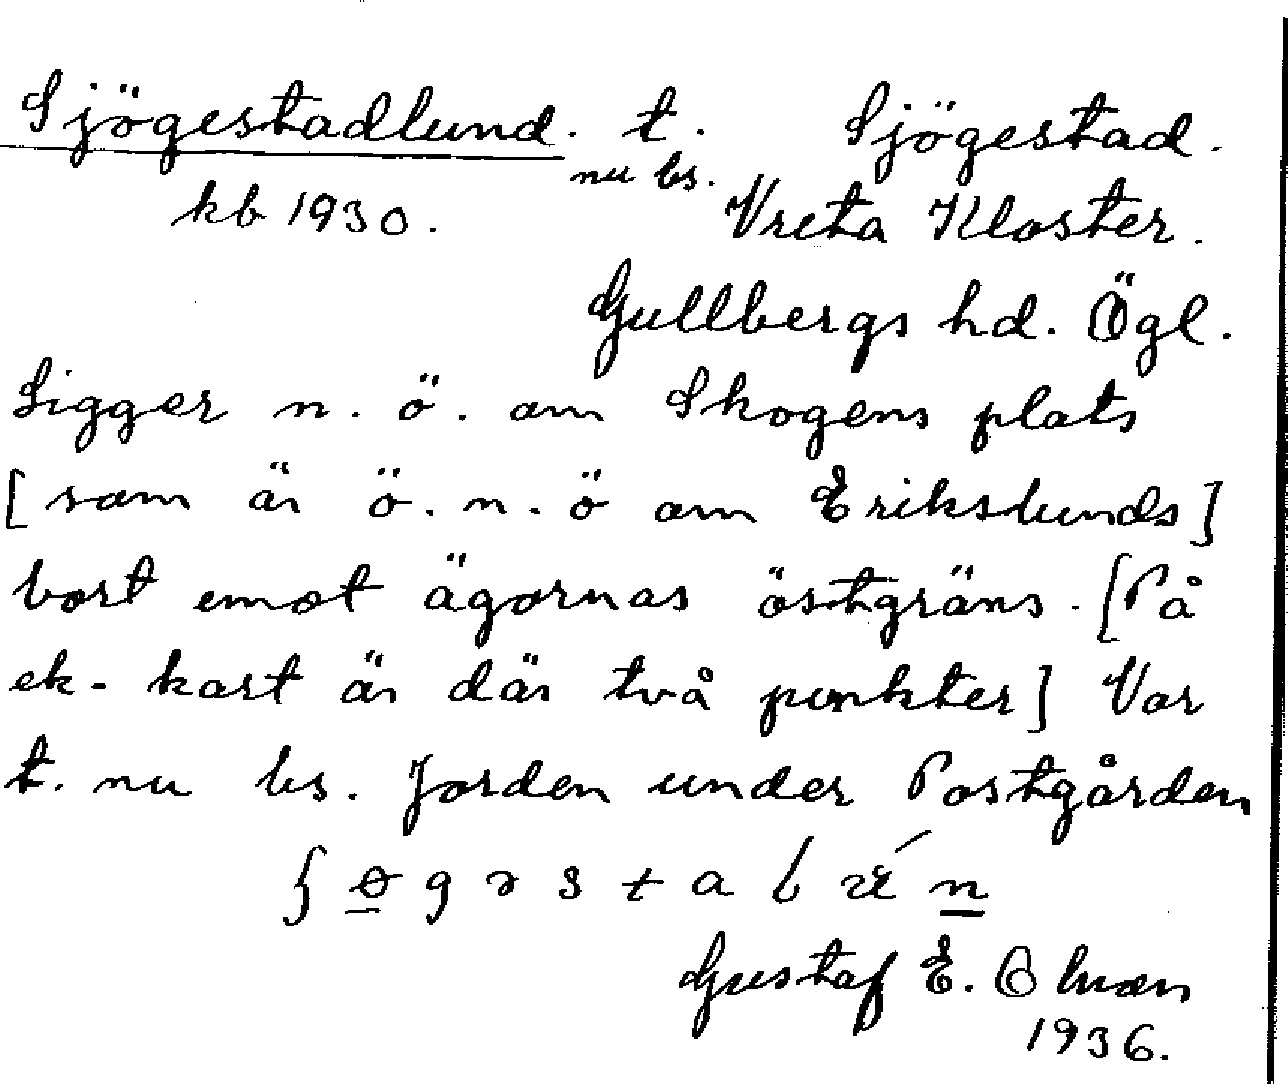 Sjögestadlund. t. Sjögestad.
nu bs.
kb 1930. Vreta Kloster.
Gullbergs hd. Ögl.
Ligger n. ö. om Skogens plats
[som är ö. n. ö om Erikslunds]
bort emot ägornas östgräns. [På
ek. kart är där två punkter] Var
t. nu bs. Jorden under Postgården
Gustaf E.
1936.